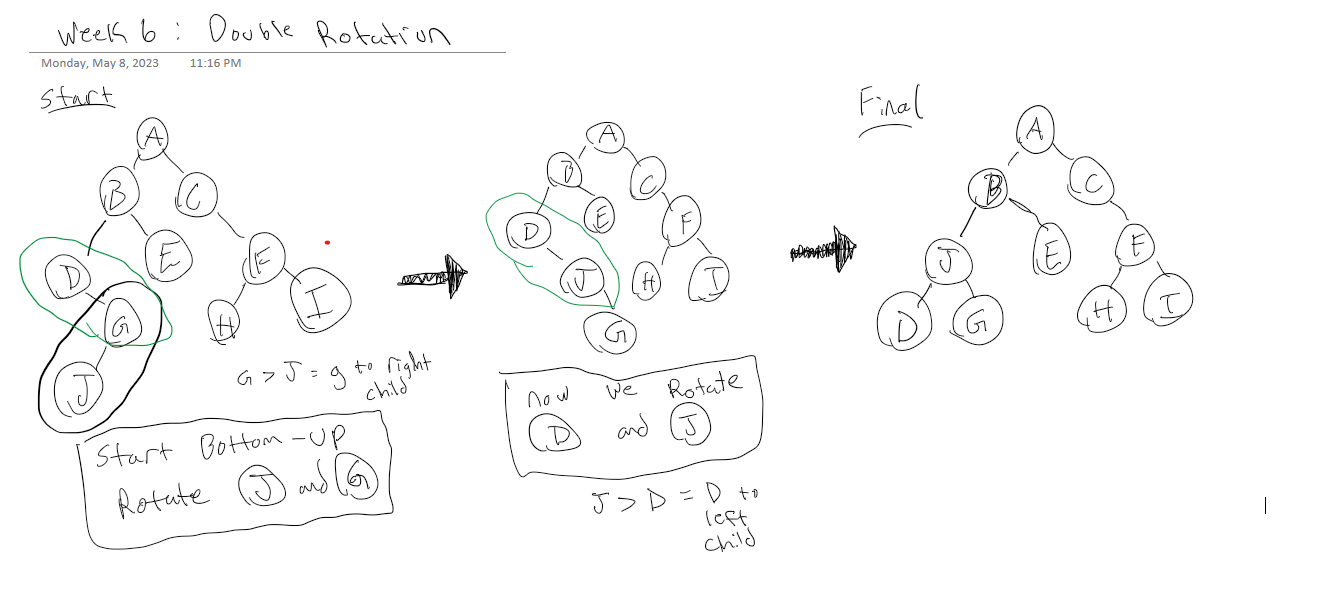 Week 6 : Double Rotation
Monday, May 8, 2023 11:16 PM
Start
A
B C
E F
D
G H I
J
G > J = g to right
child
Start Bottom-up
Rotate J and G
A
B C
D E F
J H I
G
now we Rotate
D and J
J > D = D to
left
child
Final
A
B C
J E F
D G H I